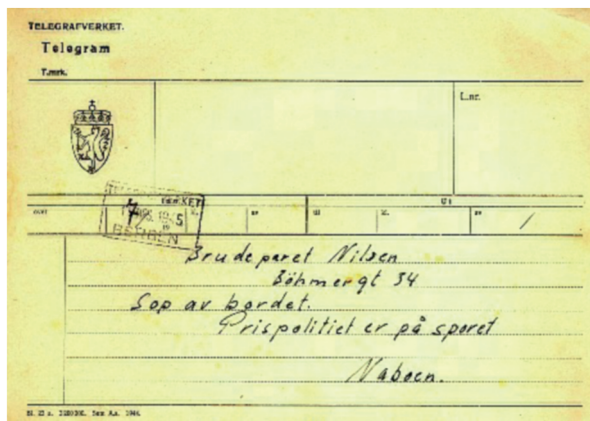 TELEGRAFVERKET.
Telegram
T.merk.
L.nr.
BERGEN
Brudeparet Nilsen
Böhmergt 34
Sop av bordet.
Prispolitiet er på sporet
Naboen.